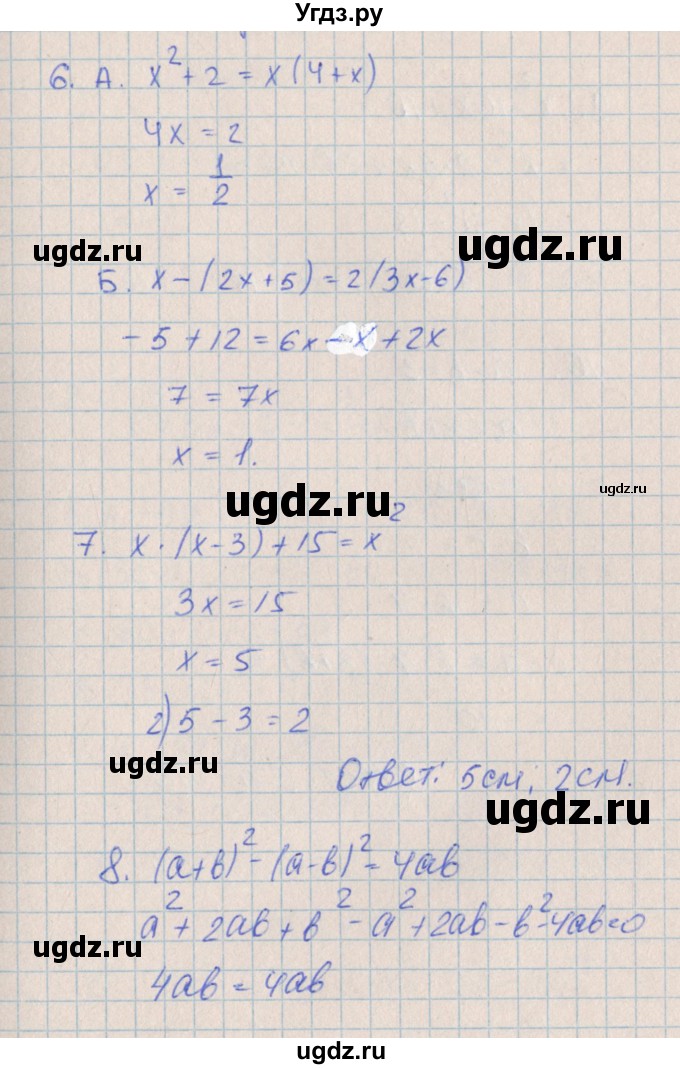 Угдз.ру
6. А. x² + 2 = x(4+x)
4x = 2
x = 1/2
ugdz.ru
ugdz.ru
Б. x - (2x+5) = 2(3x-6)
- 5 + 12 = 6x - x + 2x
7 = 7x
x = 1.
ugdz.ru
ugdz.ru
7. x · (x-3) + 15 = x²
3x = 15
x = 5
ugdz.ru
2) 5 - 3 = 2
ugdz.ru
Ответ: 5см; 2см.
ugdz.ru
8. (a+b)² - (a-b)² = 4ab
a² + 2ab + b² - a² + 2ab - b² - 4ab = 0
ugdz.ru
ugdz.ru
4ab = 4ab
ugdz.ru